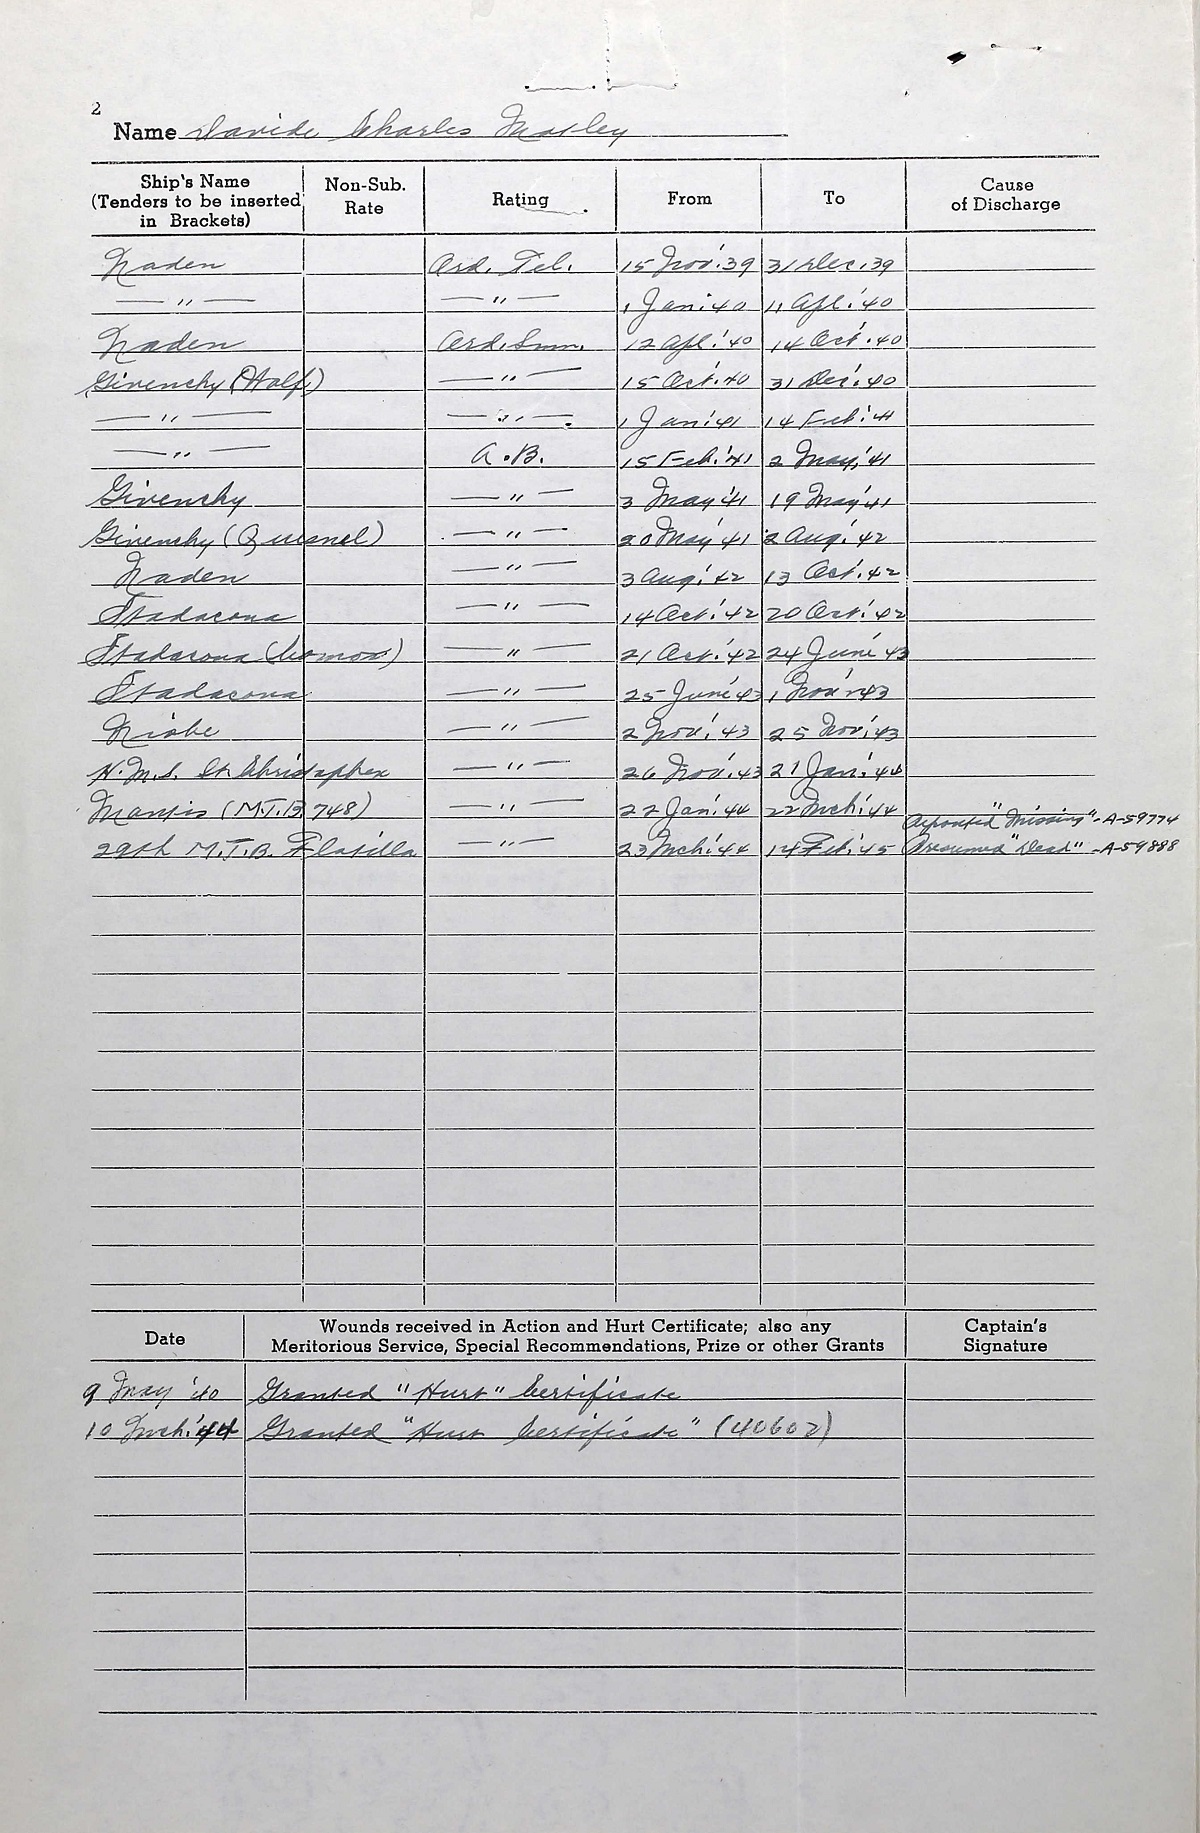 2
Name Davide Charles Motley
Ship's Name (Tenders to be inserted in Brackets) Non-Sub. Rate Rating From To Cause of Discharge
Naden Ord. Tel. 15 Nov. 39 31 Dec. 39
— " — — " — 1 Jan. 40 11 Apl. '40
Naden Ord. Smn. 12 Apl. '40 14 Oct. '40
Givenchy (Wolf) — " — 15 Oct. 40 31 Dec. 40
— " — — " — 1 Jan. '41 14 Feb. '41
— " — A.B. 15 Feb. '41 2 May, '41
Givenchy — " — 3 May '41 19 May '41
Givenchy (Quesnel) — " — 20 May '41 2 Aug. '42
Naden — " — 3 Aug. '42 13 Oct. '42
Stadacona — " — 14 Oct. '42 20 Oct. '42
Stadacona (Comox) — " — 21 Oct. '42 24 June '43
Stadacona — " — 25 June '43 1 Nov. '43
Niobe — " — 2 Nov. '43 25 Nov. '43
H.M.S. St. Christopher — " — 26 Nov. '43 21 Jan. '44
Mantis (M.T.B. 748) — " — 22 Jan. '44 22 Mch. '44 Reported "Missing" - A-59774
29th M.T.B. Flotilla — " — 23 Mch. '44 14 Feb. '45 Presumed "Dead" - A-59888
Date Wounds received in Action and Hurt Certificate; also any Meritorious Service, Special Recommendations, Prize or other Grants Captain's Signature
9 May '40 Granted "Hurt" Certificate
10 Mch. '44 Granted "Hurt Certificate" (40602)